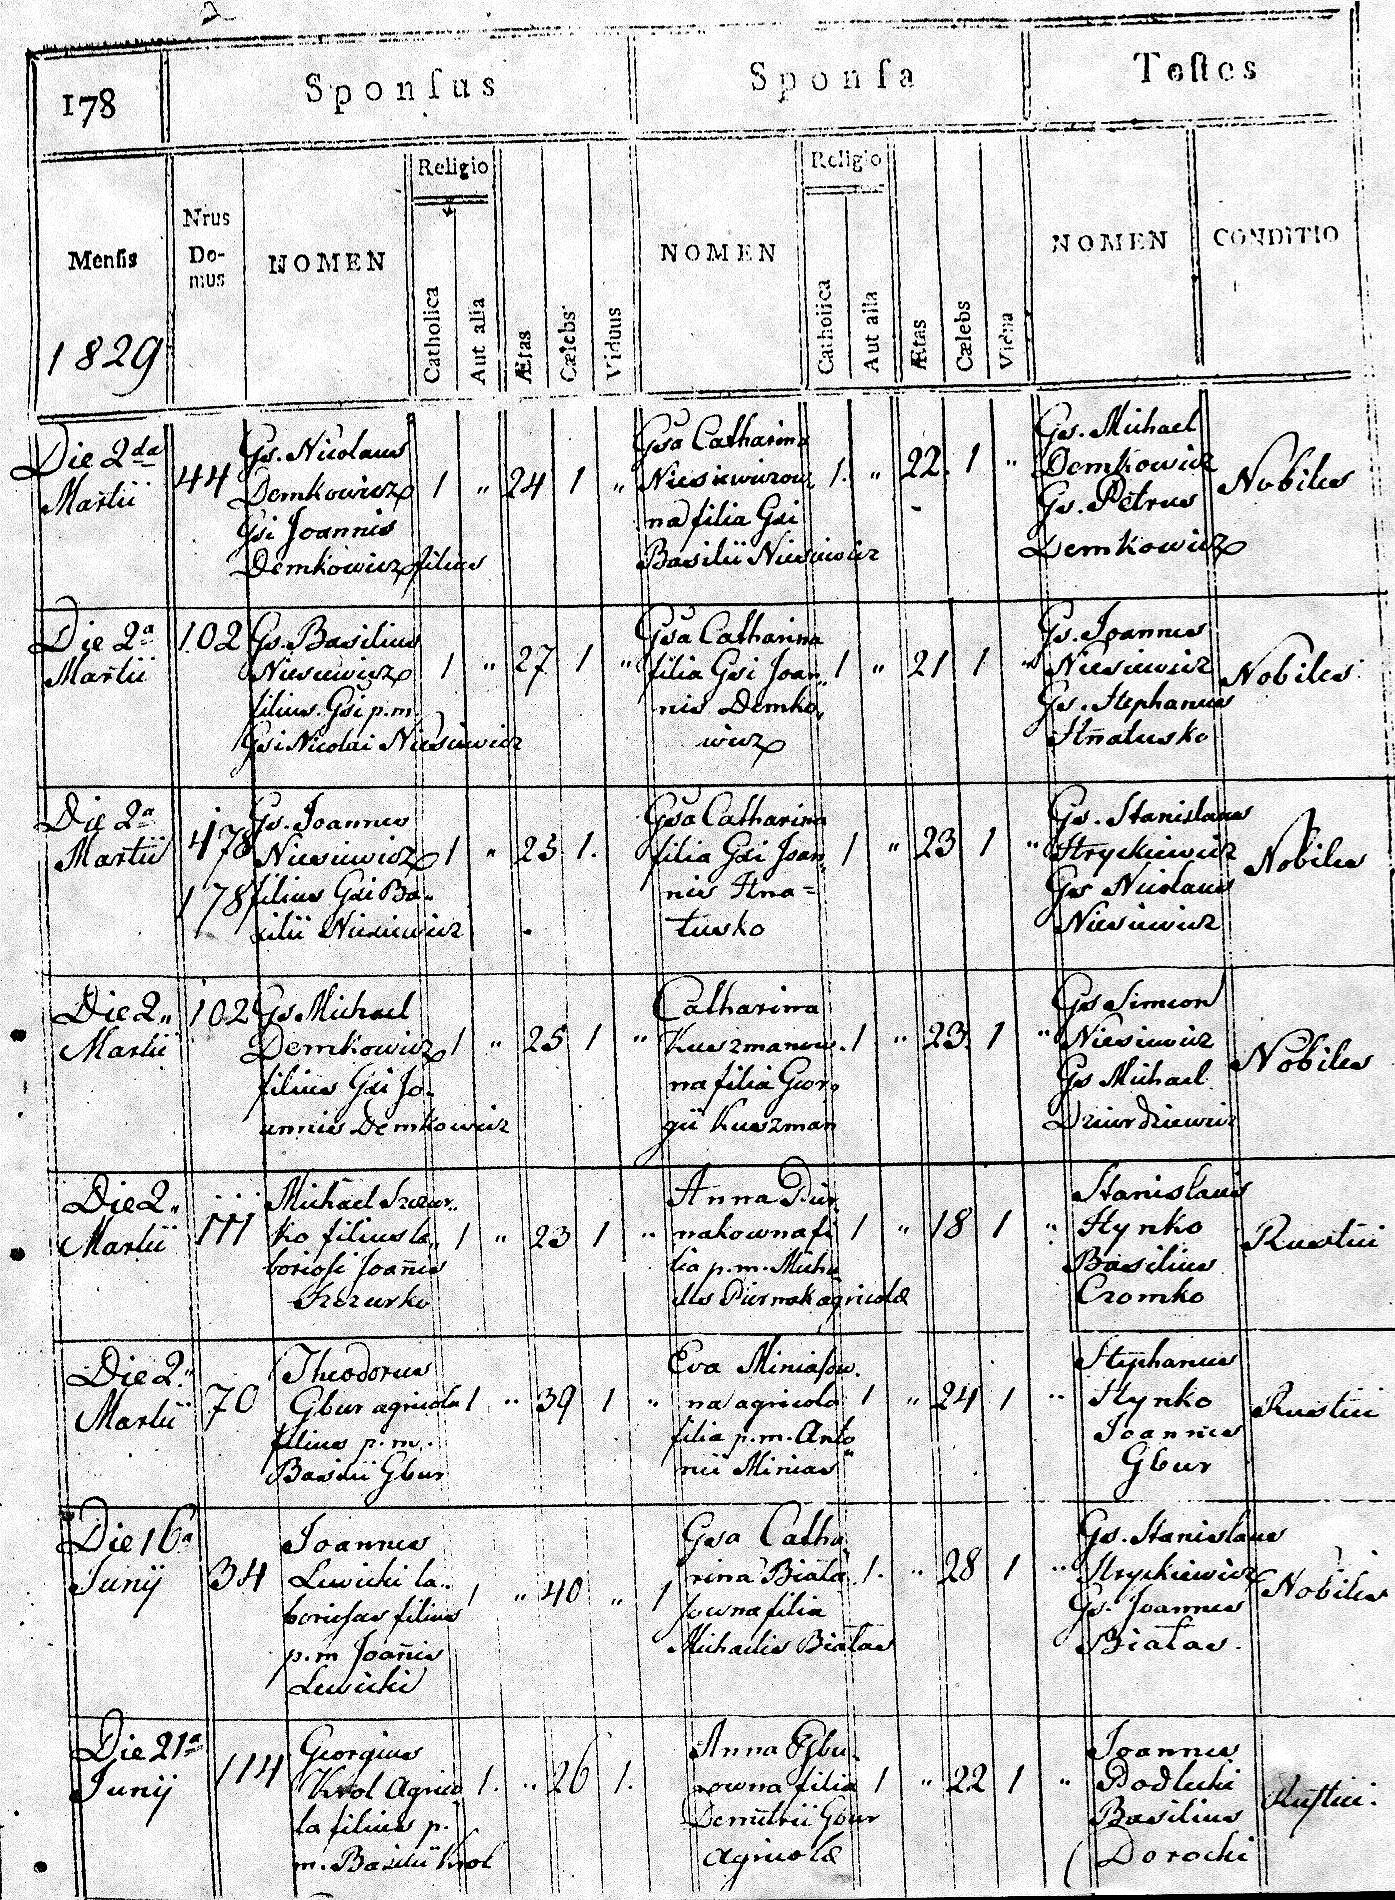 2
178
Sponsus
Sponsa
Testes
Mensis
1829
Nrus
Do-
mus
NOMEN
Religio
Catholica
Aut alia
Ætas
Cælebs
Viduus
NOMEN
Religio
Catholica
Aut alia
Ætas
Cælebs
Vidua
NOMEN
CONDITIO
Die 2da
Martii
44
Gs. Nicolaus
Demkowicz
Gsi Joannis
Demkowicz filius
1 " 24 1 "
Gsa Catharina
Niesiewiczow
na filia Gsi
Basilii Niesiewicz
1. " 22. 1 "
Gs. Michael
Demkowicz
Gs. Petrus
Demkowicz
Nobiles
Die 2a
Martii
102
Gs. Basilius
Niesiewicz
filius Gsi p.m.
Gsi Nicolai Niesiewicz
1 " 27 1 "
Gsa Catharina
filia Gsi Joan„
nis Demko„
wicz
1 " 21 1 "
Gs. Joannes
Niesiewicz
Gs. Stephanus
Hnatusko
Nobiles
Die 2a
Martii
178
178
Gs. Joannes
Niesiewicz
filius Gsi Ba„
silii Niesiewicz
1 " 25 1.
Gsa Catharina
filia Gsi Joan„
nis Hna=
tusko
1 " 23 1 "
Gs. Stanislaus
Hryckiewicz
Gs Nicolaus
Niesiewicz
Nobiles
Die 2„
Martii
102
Gs Michael
Demkowicz
filius Gsi Jo„
annis Demkowicz
1 " 25 1 "
Catharina
Kuszmanow„
na filia Geor„
gii Kuszman
1 " 23. 1 "
Gs Simeon
Niesiewicz
Gs Michael
Dziurdziewicz
Nobiles
Die 2„
Martii
111
Michael Szczur„
ko filius la„
boriosi Joan̄is
Szczurko
1 " 23 1 "
Anna Pur„
nakowna fi
lia p.m. Micha
elis Purnak agricolæ
1 " 18 1 "
Stanislaus
Hynko
Basilius
Cromko
Rustici
Die 2„
Martii
70
Theodorus
Gbur agricola
filius p.m.
Basilii Gbur
1 " 39 1 "
Eva Miniasow„
na agricola
filia p.m. Anto„
nii Minias
1 " 24 1 "
Stephanus
Hynko
Joannes
Gbur
Rustici
Die 16a
Junij
34
Joannes
Lewicki la„
boriosus filius
p.m Joan̄is
Lewicki
1 " 40 " 1
Gsa Catha„
rina Biała„
sowna filia
Michaelis Białas
1. " 28 1 "
Gs. Stanislaus
Hryckiewicz
Gs. Joannes
Białas.
Nobiles
Die 21a
Junij
114
Georgius
Krol Agrico
la filius p.
m. Basilii Krol
1. " 26 1.
Anna Gbu„
rowna filia
Demitrii Gbur
agricolæ
1 " 22 1 "
Joannes
Podlecki
Basilius
Dorocki
Rustici.